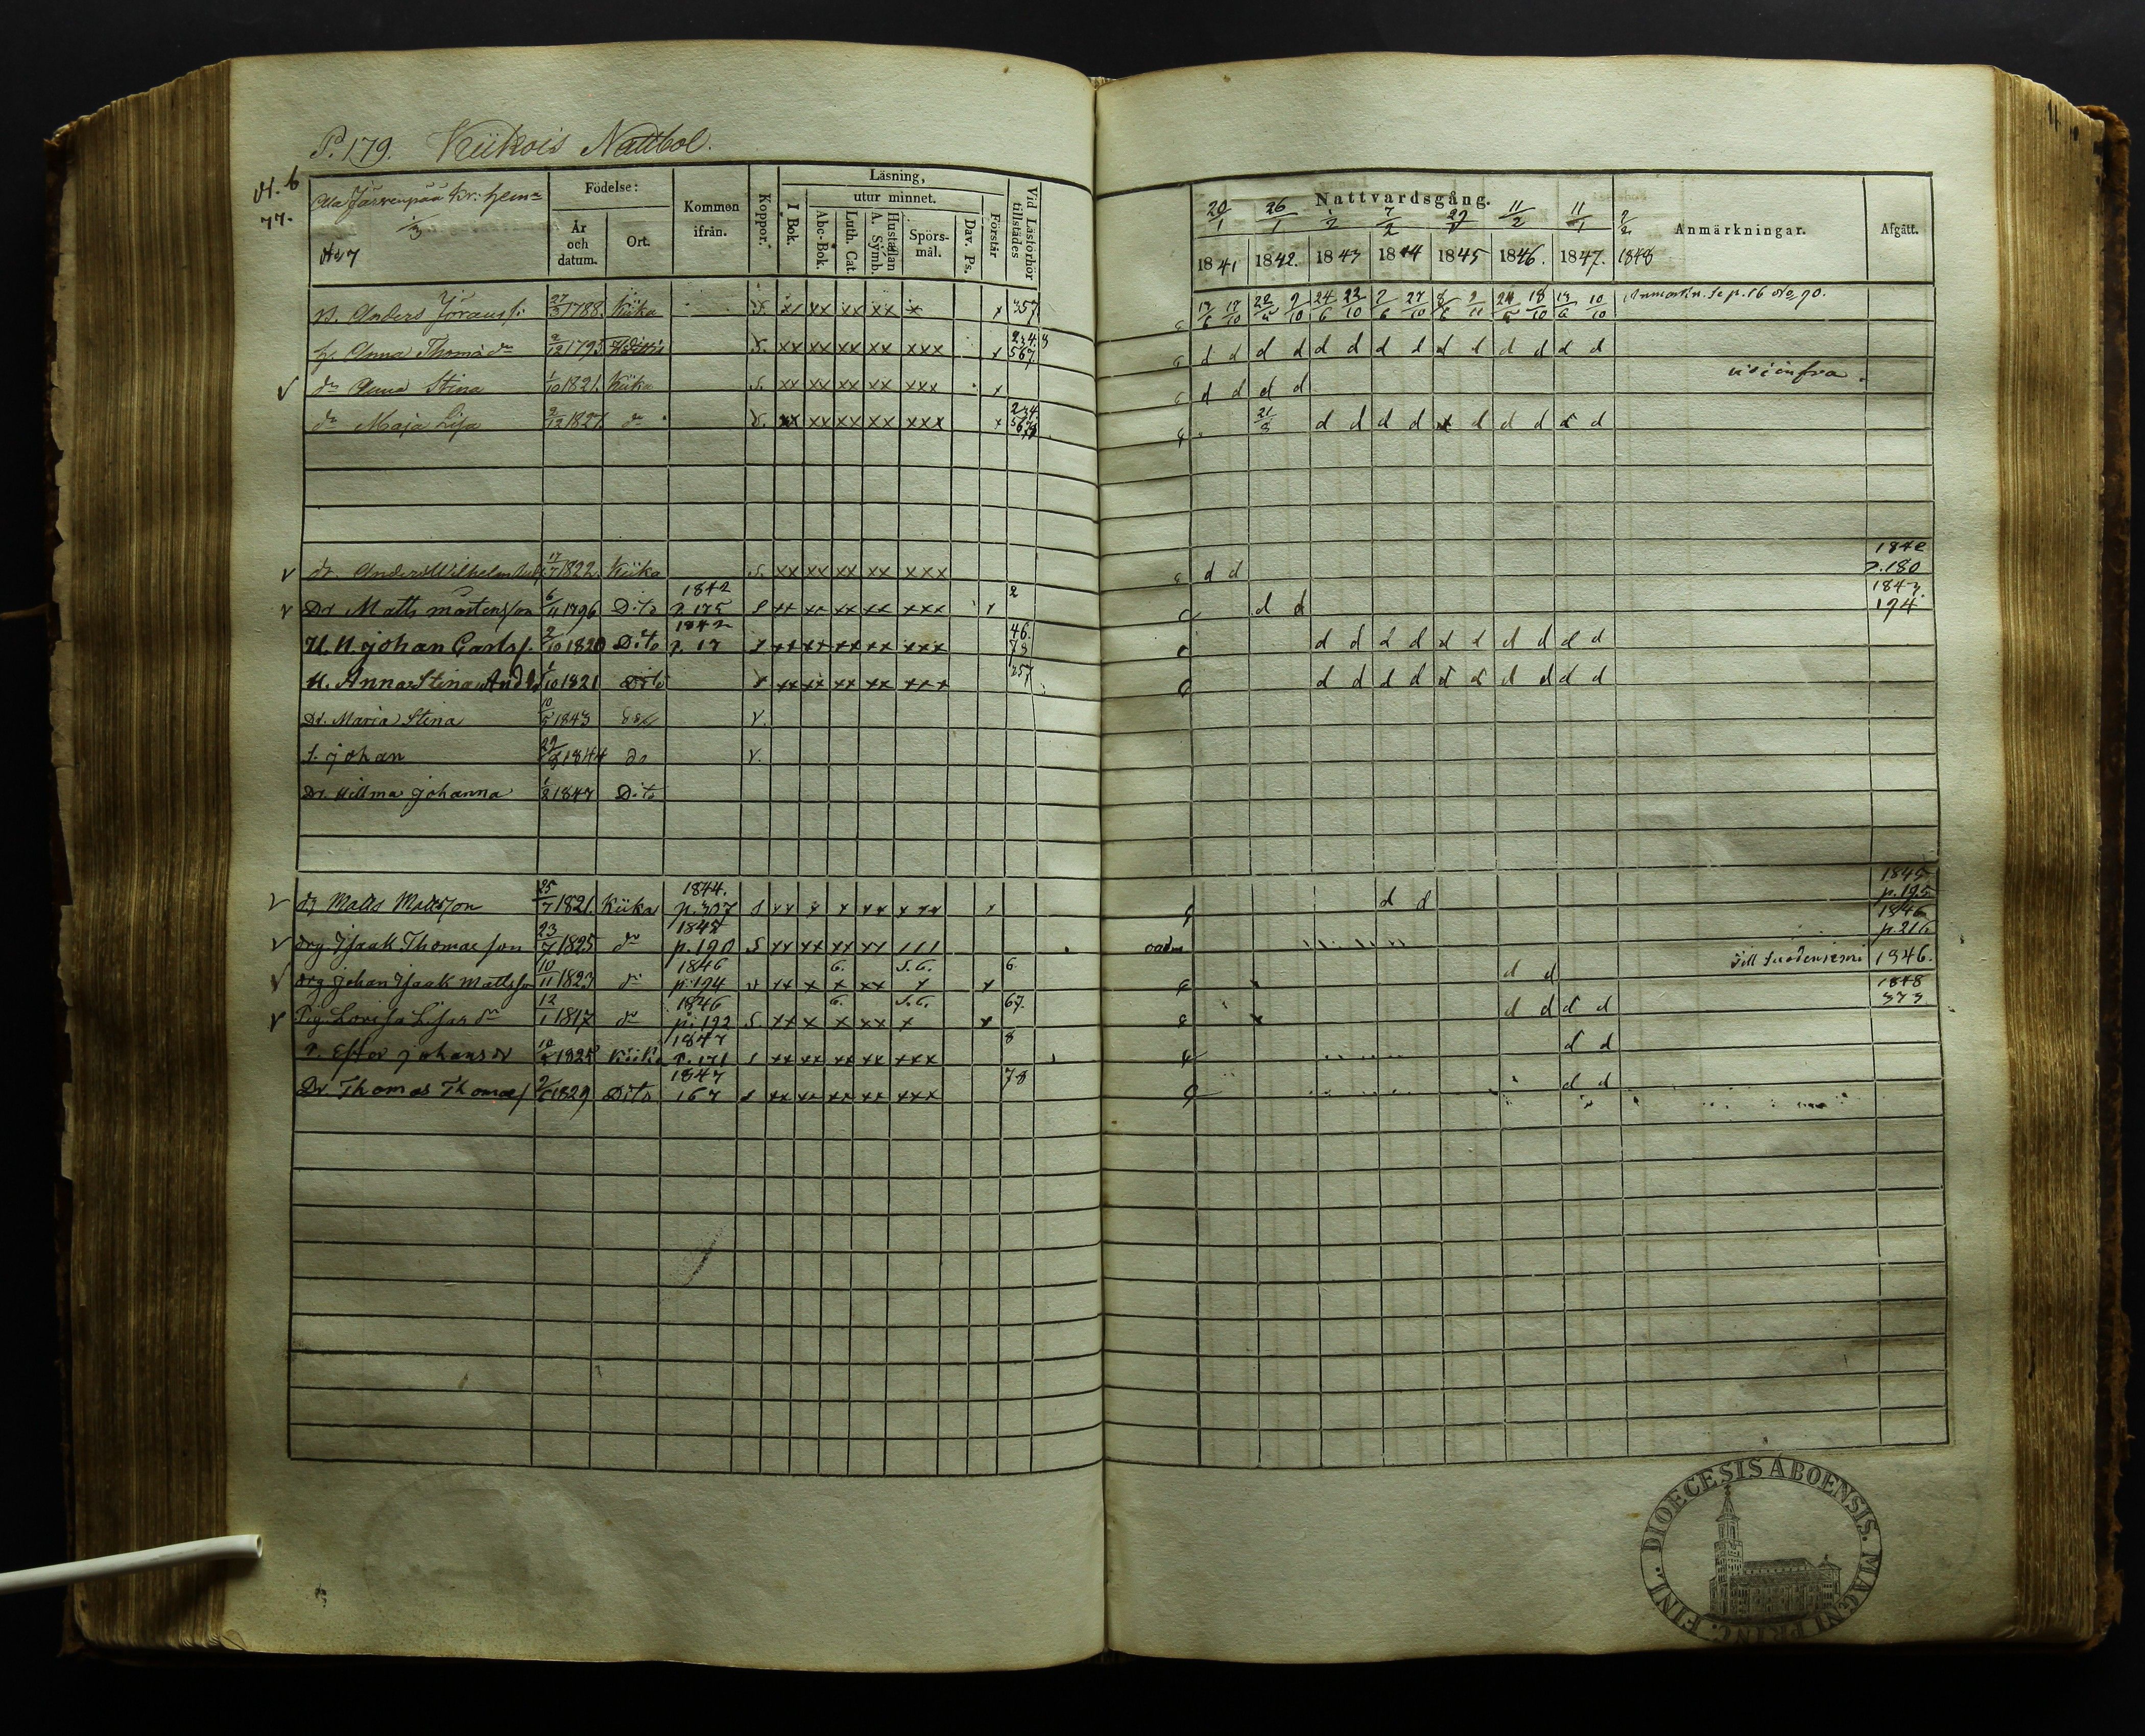 P. 179. Kiikois Nattbol.
H. 6
77.
Ala Järvenpää kr: hem=
1/3
No 7
Födelse:
År och datum.
Ort.
Kommen ifrån.
Koppor.
Läsning,
I Bok.
utur minnet.
Abc-Bok.
Luth. Cat.
Hustaflan A. Symb.
Spörsmål.
Dav. Ps.
Förstår
Vid Läsförhör tillstädes
Nattvardsgång.
20/1 26/1 1/2 7/2 11/2 11/1 2/2
1841 1842. 1843 1844 1845 1846. 1847. 1848
Anmärkningar.
Afgått.
B. Anders Jöranss: 27/3 1788. Kiika S. xx xx xx xx x x 357
17/6 17/10 22/5 9/10 24/6 22/10 2/6 27/10 8/6 2/11 24/5 18/10 13/6 10/10
h. Anna Thomædr 2/12 1795 S. xx xx xx xx xxx x 234.8 567. d d d d d d d d d d d d d d
dr Anna Stina 1/10 1821. Kiika S. xx xx xx xx xxx x d d d d
dr Maja Lisa 2/12 1827 do S. xx xx xx xx xxx x 234. 21/8 d d d d d d d d d d
dr. Anders Wilhelm 17/7 1822. Kiika S. xx xx xx xx xxx d d 1842 p. 180
Dr Matts Mårtensson 6/11 1796 Dito 1842 p. 175 S xx xx xx xx xxx x 2 d d 1843. 194
U. N. Johan Carlss. 2/10 1820 Dito 1842 p. 17 S xx xx xx xx xxx 46. 78 d d d d d d d d d d
H. Anna Stina Andrd 1/10 1821 Dito xx xx xx xx xxx 357 d d d d d d d d d d
Dr. Maria Stina 10/5 1843 v.
S. Johan 29/8 1844 do v.
Dr. Willma Johanna 1/8 1847 Dito
dr Matts Mattsson 25/7 1821. Kiika 1844. p. 307 S xx x x xx x xx x d d 1845 p. 195
drg Isaak Thomæson 23/7 1825 do p. 190 S xx xx xx xx 1846 p. 216
drg Johan Isaak Mattsson 10/11 1823 do 1846 p. 194 v xx x x xx x x 6. S. G. 6 d d 1846.
Pig. Lovisa Lisas dr 12/1 1817 do 1846 p. 192 S. xx x x xx x x 6. S. G. 67. d d d d 1848 373
P. Ester Johansdr 1825 Kiika 1847 p. 171 S xx xx xx xx xxx 8 d d
Dr. Thomas Thomæs. 2/6 1829 Dito 1847 167 S xx xx xx xx xxx 78 d d
DIOECESIS ABOENSIS. MAGNI PRINC. FINL.